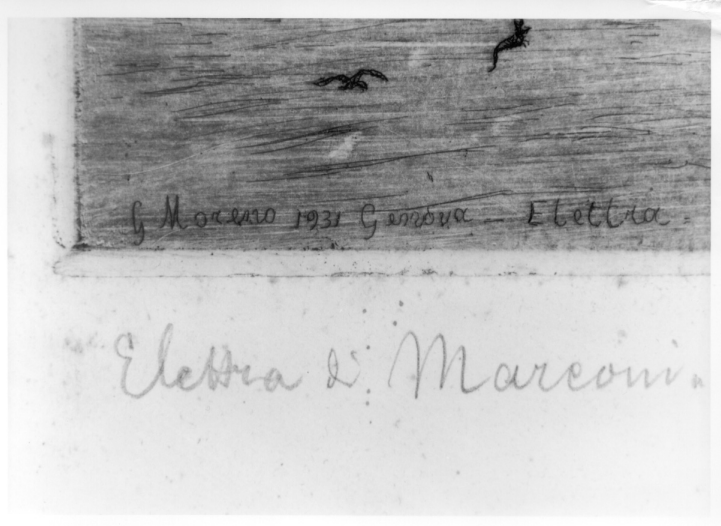 G Moreno 1931 Genova - Elettra.
Elettra di Marconi.